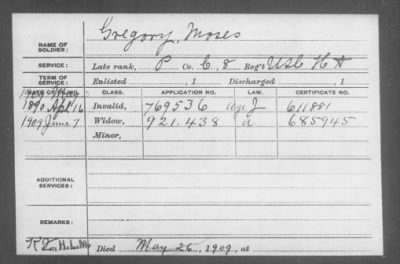 NAME OF SOLDIER: Gregory, Moses
SERVICE: Late rank, P Co. C, 8 Reg't USC H A
TERM OF SERVICE: Enlisted , 1 Discharged , 1
DATE OF FILING. CLASS. APPLICATION NO. LAW. CERTIFICATE NO.
1890 Apl 16 Invalid, 769536 J 611881
1909 June 7 Widow, 921.438 a 685945
Minor,
ADDITIONAL SERVICES:
REMARKS:
Died May 26, 1909, at